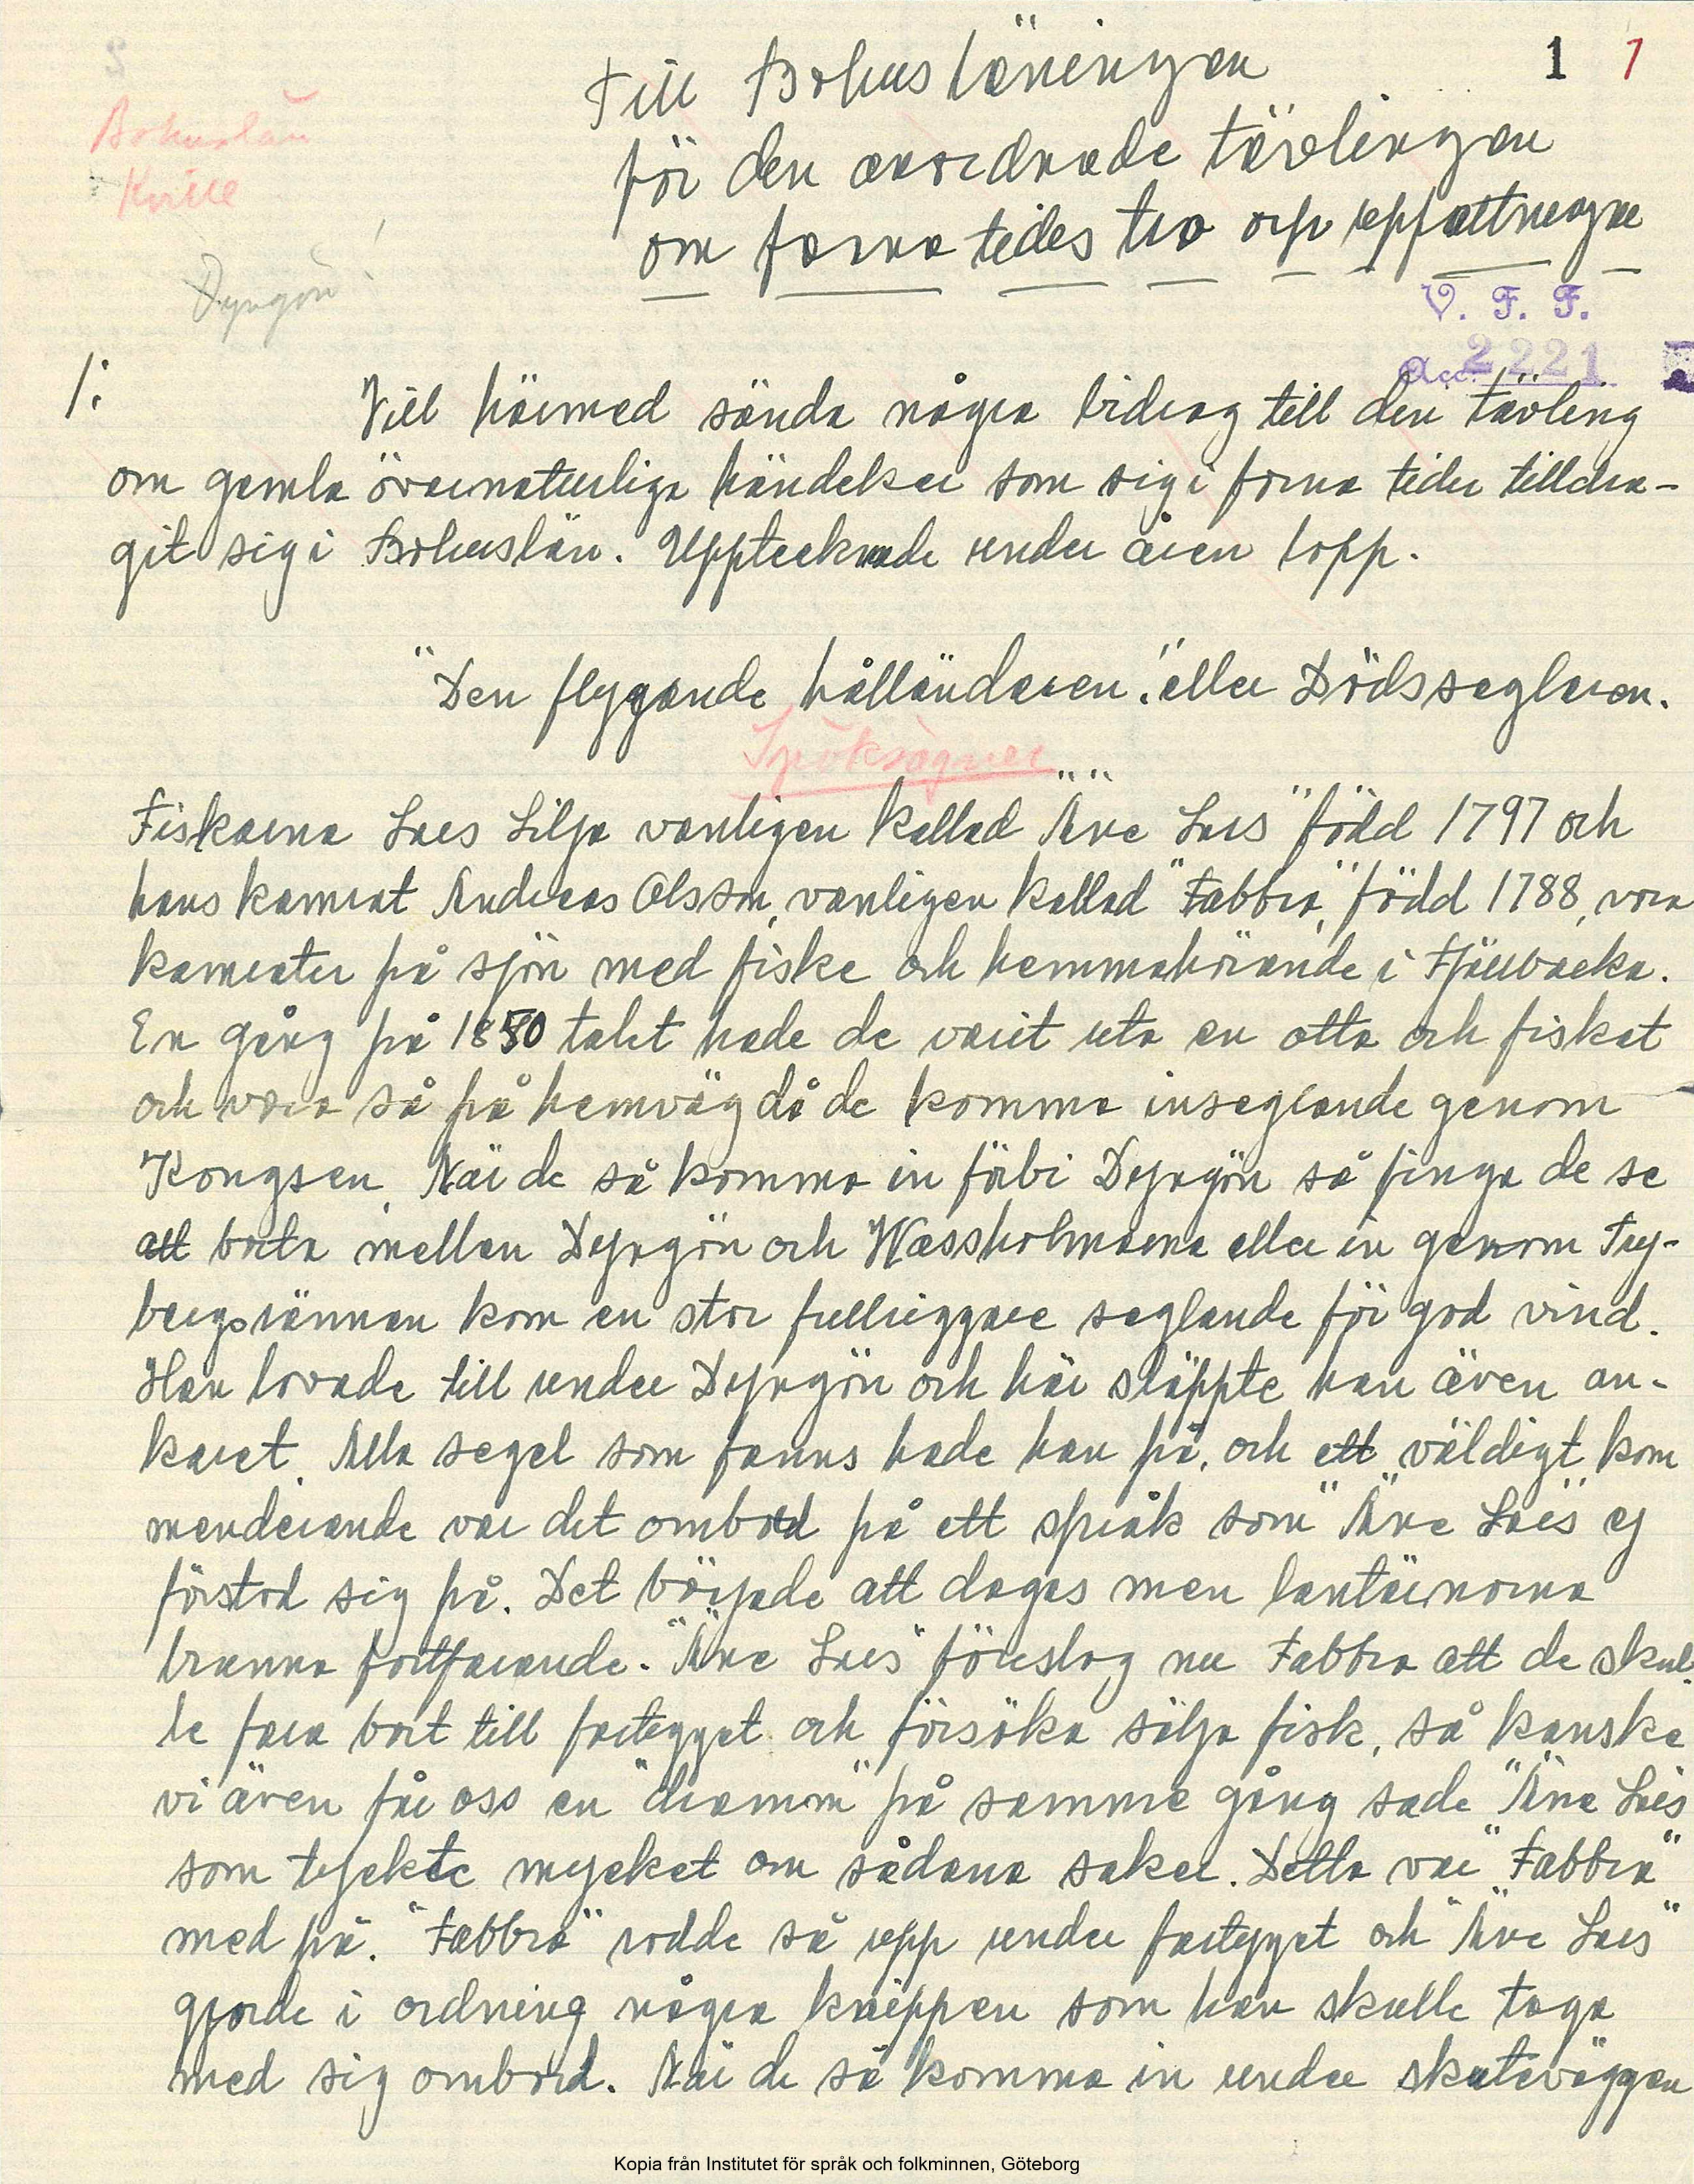 1 1
Till Bohusläningen
för den anordnade tävlingen
om forna tides tro och uppfattningar
Bohuslän
Kville
Dyngön!
V. F. F.
Acc. 2221
1:
Vill härmed sända några bidrag till den tävling
om gamla övernaturliga händelser som sig i forna tider tilldra-
git sig i Bohuslän. Upptecknade under åren lopp.
"Den flygande hålländaren." eller Dödsseglaren.
Spöksägner
Fiskarna Lars Lilja vanligen kallad "Äne Lars" född 1797 och
hans kamrat Andreas Olsson, vanligen kallad "Fabbra," född 1788, vora
kamrater på sjön med fiske och hemmahörande i Fjällbacka.
En gång på 1850 talet hade de varit uta en otta och fiskat
och vora så på hemväg då de komma inseglande genom
Kongsen. När de så komma in förbi Dyngön så finga de se
att borta mellan Dyngön och Wassholmarna eller in genom Try-
bergsrännan kom en stor fullriggare seglande för god vind.
Han lovade till under Dyngön och här släppte han även an-
karet. Alla segel som fanns hade han på, och ett väldigt kom
menderande var det ombord på ett språk som "Äne Lars" ej
förstod sig på. Det började att dagas men lantärnorna
brunno fortfarande. "Äne Lars" föreslog nu Fabbra att de skul-
le fara bort till fartygget och försöka sälja fisk, så kanske
vi även får oss en "dramm" på samme gång sade "Äne Lars
som tyckte mycket om sådana saker. Detta var "Fabbra"
med på. "Fabbra" rodde så upp under fartygget och "Äne Lars"
gjorde i ordning några knippen som han skulle taga
med sig ombord. När de så komma in under skuteväggen
Kopia från Institutet för språk och folkminnen, Göteborg